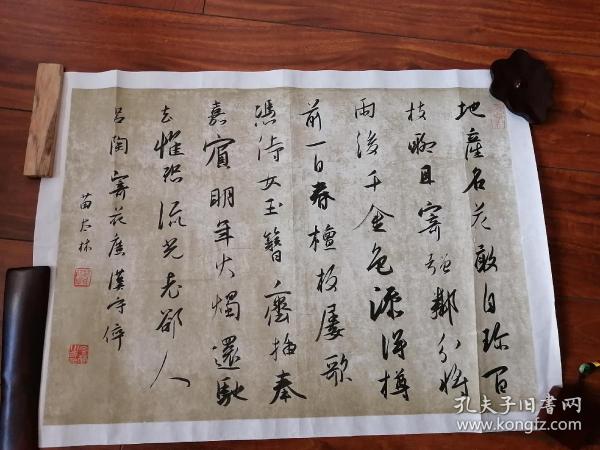 地產名花敢自珍百
枝聊且寄强鄰分將
雨後千金色添得樽
前一日春檀板屢歌
憑侍女玉簪齊插奉
嘉賓明年火燭還馳
去惟恐流光老郤人
吕陶寄花廣漢守倅
苗太林
孔夫子旧书网
www.kongfz.com